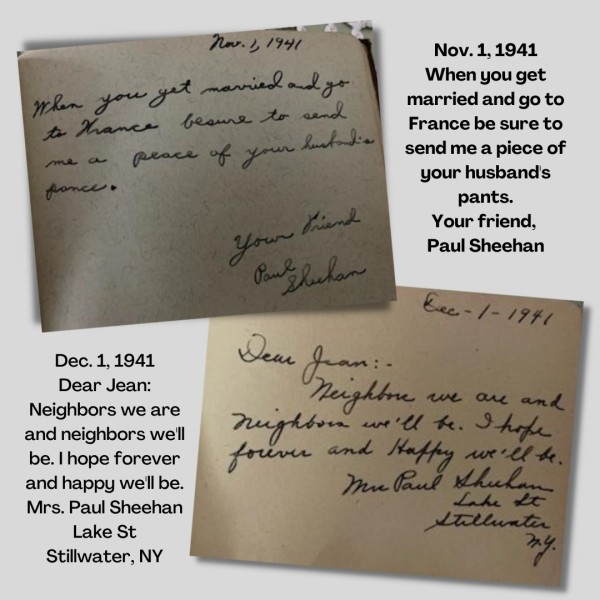 Nov. 1, 1941
When you get married and go
to France besure to send
me a peace of your husband's
pance.
Your Friend
Paul
Sheehan
Nov. 1, 1941
When you get
married and go to
France be sure to
send me a piece of
your husband's
pants.
Your friend,
Paul Sheehan
Dec. 1, 1941
Dear Jean:
Neighbors we are
and neighbors we'll
be. I hope forever
and happy we'll be.
Mrs. Paul Sheehan
Lake St
Stillwater, NY
Dec-1-1941
Dear Jean:-
Neighbors we are and
neighbors we'll be. I hope
forever and Happy we'll be.
Mrs Paul Sheehan
Lake St
Stillwater
N.Y.